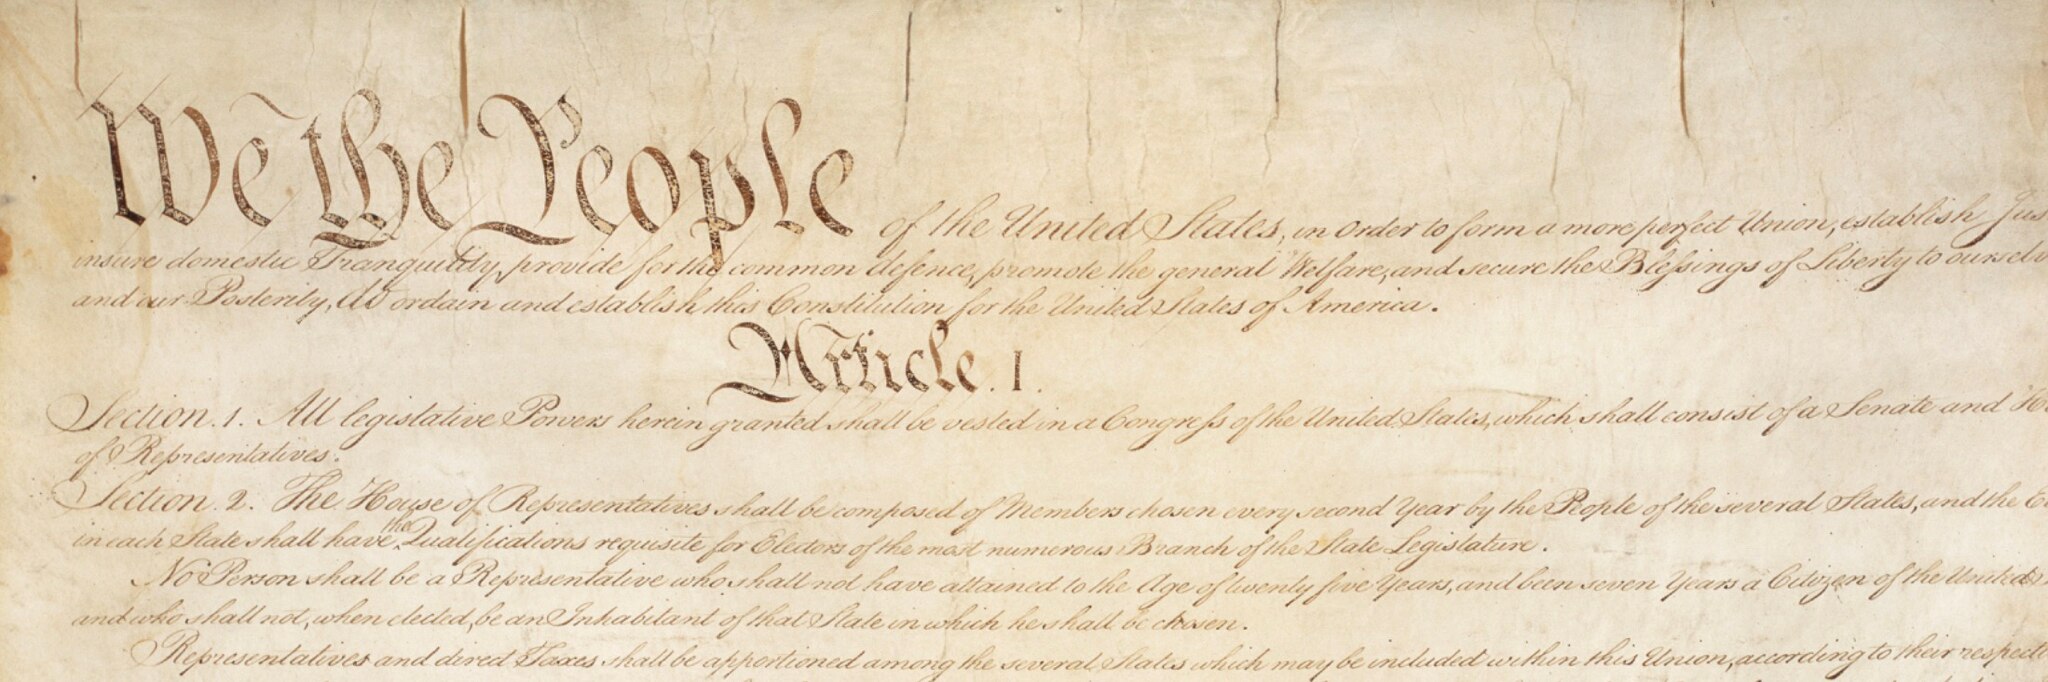 We the People of the United States, in Order to form a more perfect Union, establish Jus
insure domestic Tranquility, provide for the common defence, promote the general Welfare, and secure the Blessings of Liberty to oursel
and our Posterity, do ordain and establish this Constitution for the United States of America.
Article. I.
Section. 1. All legislative Powers herein granted shall be vested in a Congress of the United States, which shall consist of a Senate and
of Representatives.
Section. 2. The House of Representatives shall be composed of Members chosen every second Year by the People of the several States, and the
in each State shall have the Qualifications requisite for Electors of the most numerous Branch of the State Legislature.
No Person shall be a Representative who shall not have attained to the Age of twenty five Years, and been seven Years a Citizen of the United
and who shall not, when elected, be an Inhabitant of that State in which he shall be chosen.
Representatives and direct Taxes shall be apportioned among the several States which may be included within this Union, according to their respect